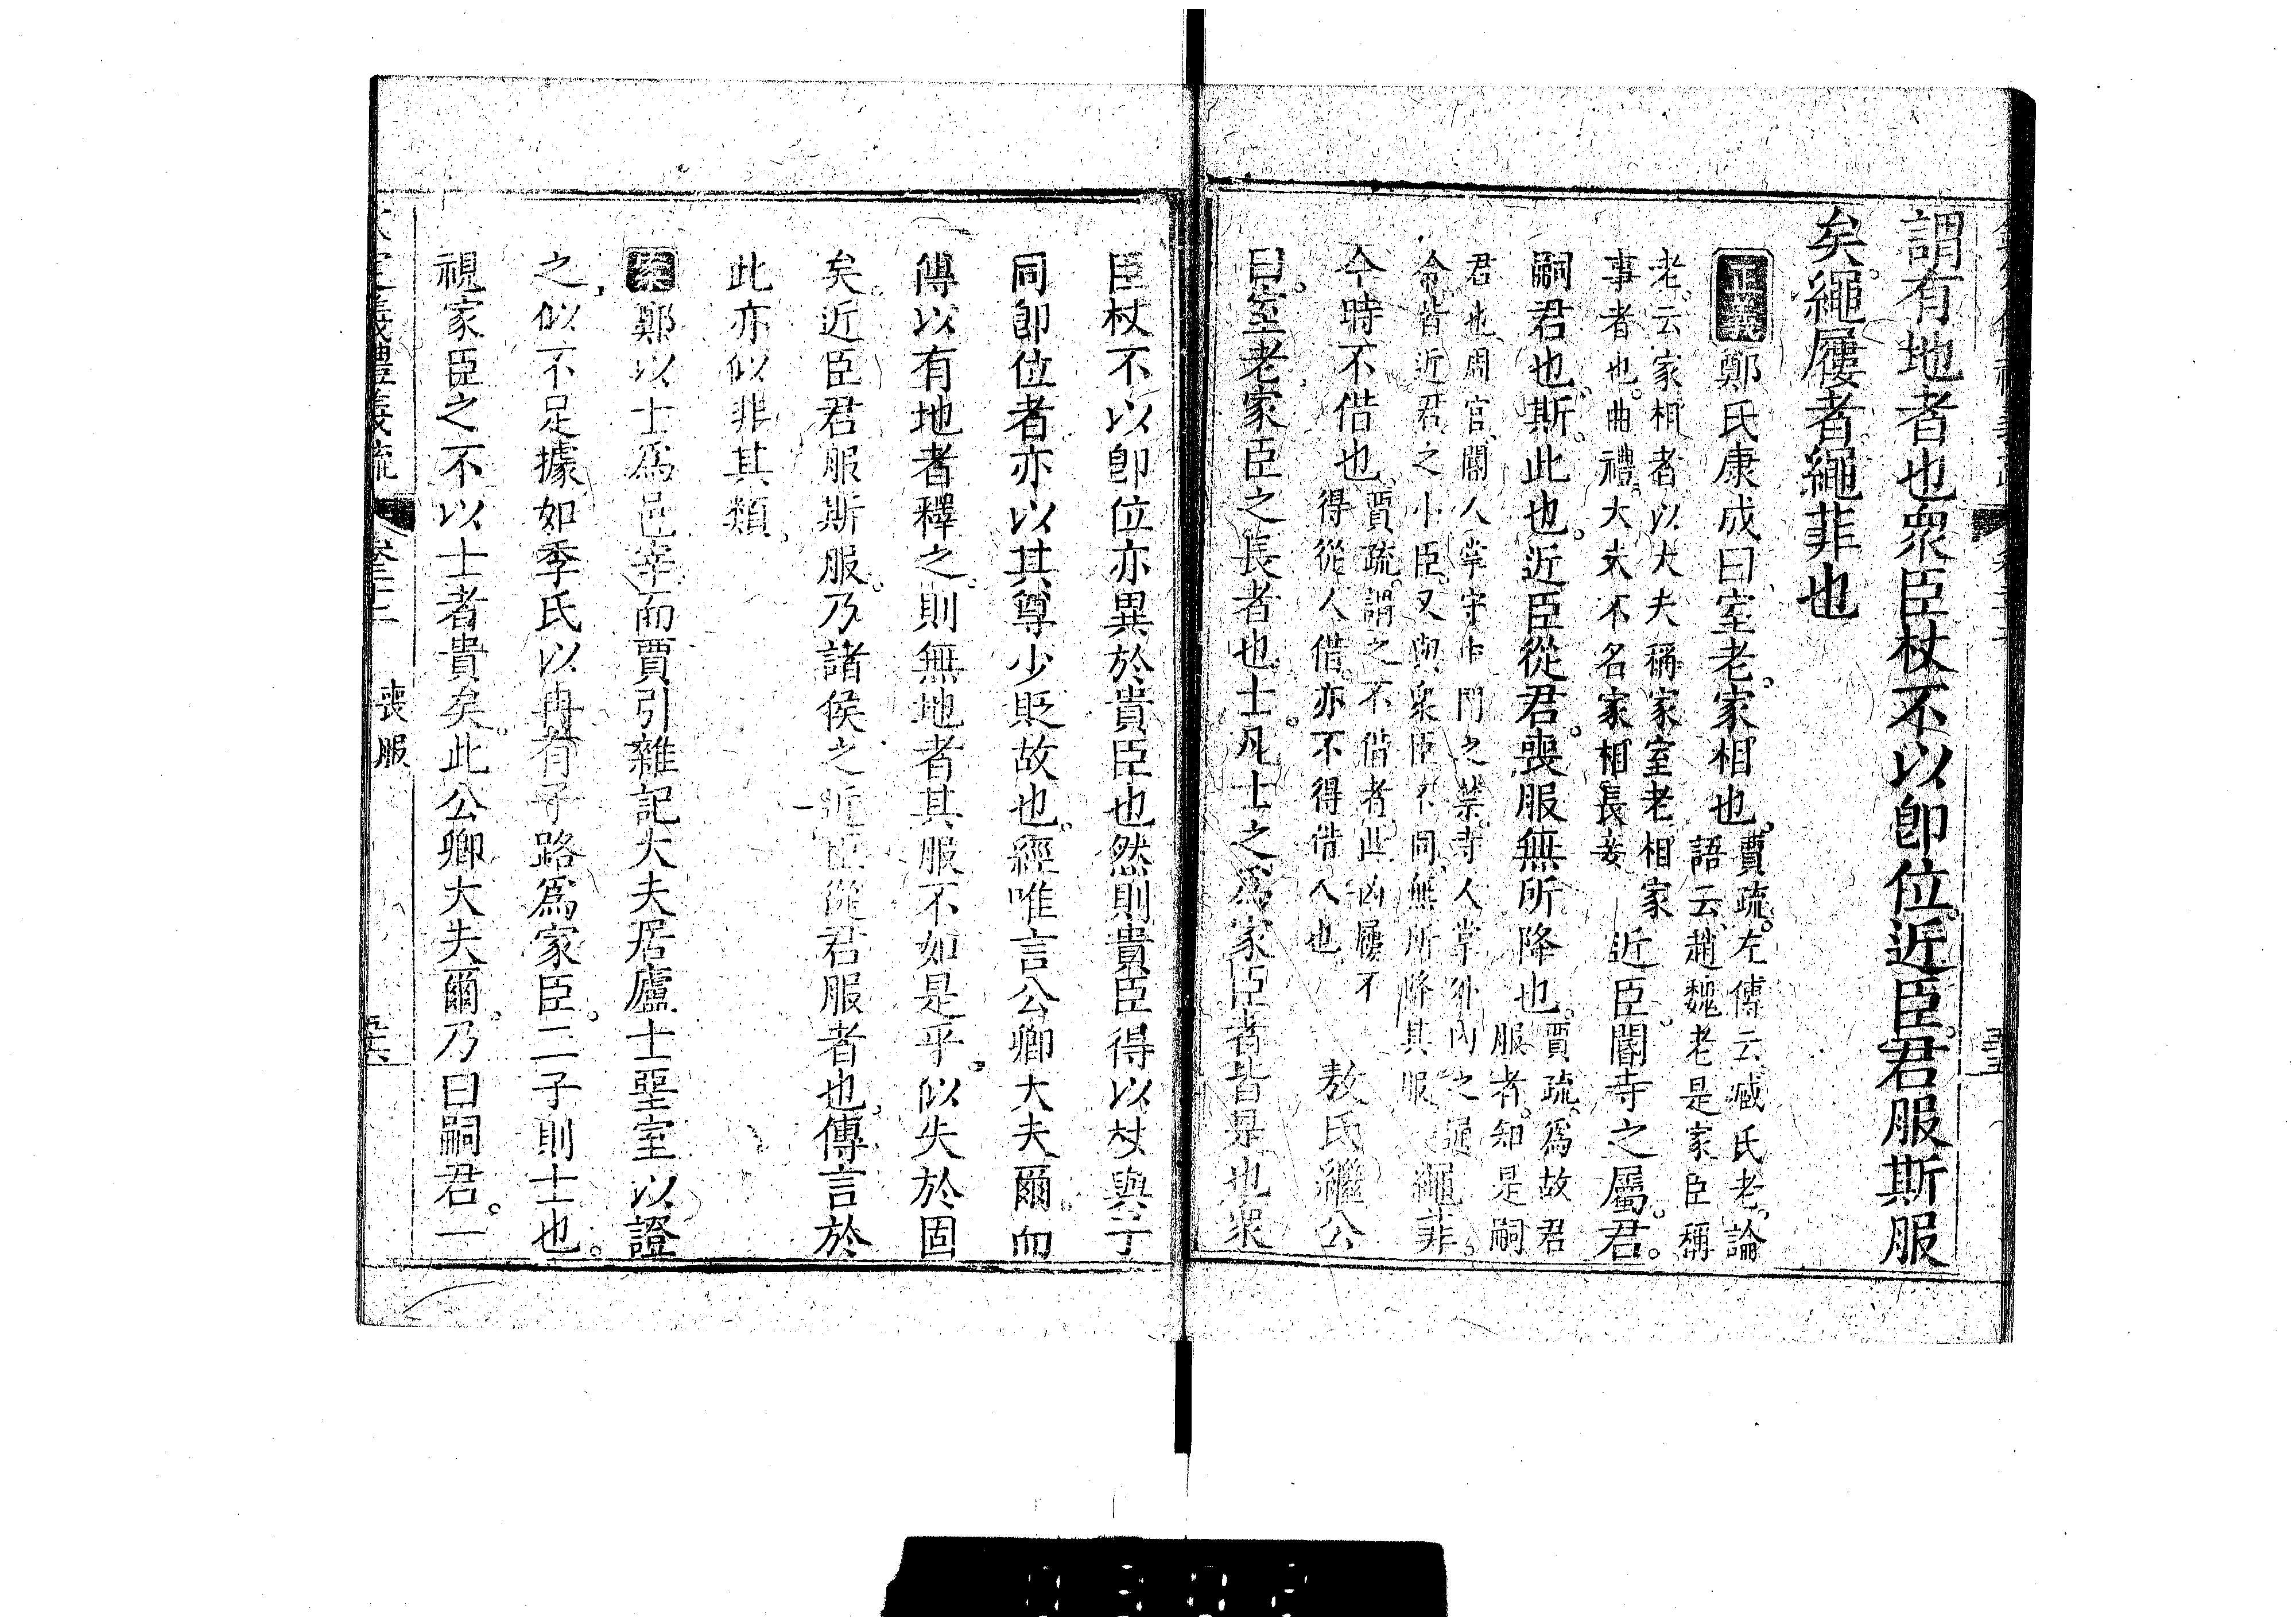 謂有地者也衆臣杖不以卽位。近臣。君服斯服
矣。繩屨者繩菲也
正義 鄭氏康成曰室老。家相也。賈疏。左傳云。臧氏老。論
語云。趙魏老是家臣稱
老。云家相者以大夫稱家室老相家
事者也。曲禮。大夫不名家相長妾 近臣。閽寺之屬。君。
嗣君也。斯。此也。近臣從君。喪服無所降也。賈疏。爲故君
服者。知是嗣
君也周官。閽人掌守中門之禁。寺人掌外內之通
令。皆近君之小臣。又與衆臣不同。無所降其服 繩菲。
今時不借也。賈疏。謂之不借者。此凶屨不
得從人借。亦不得借人也 敖氏繼公
曰。室老家臣之長者也。士。凡士之爲家臣者皆是也衆
臣杖不以卽位亦異於貴臣也然則貴臣得以杖與子
同卽位者亦以其尊少貶故也。經唯言公卿大夫爾。而
傳以有地者釋之。則無地者其服不如是乎。似失於固
矣。近臣君服斯服。乃諸侯之近臣從君服者也。傳言於
此亦似非其類。
案 鄭以士爲邑宰而賈引雜記大夫居廬士堊室以證
之。似不足據如季氏以冉有子路爲家臣。二子則士也。
視家臣之不以士者貴矣。此公卿大夫爾。乃曰嗣君。一
喪服